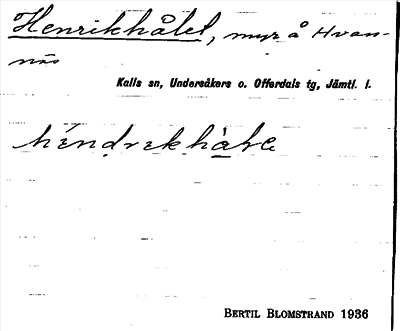 Henrikhålet, myr å Hvan-
näs
Kalls sn, Undersåkers o. Offerdals tg, Jämtl. l.
BERTIL BLOMSTRAND 1936